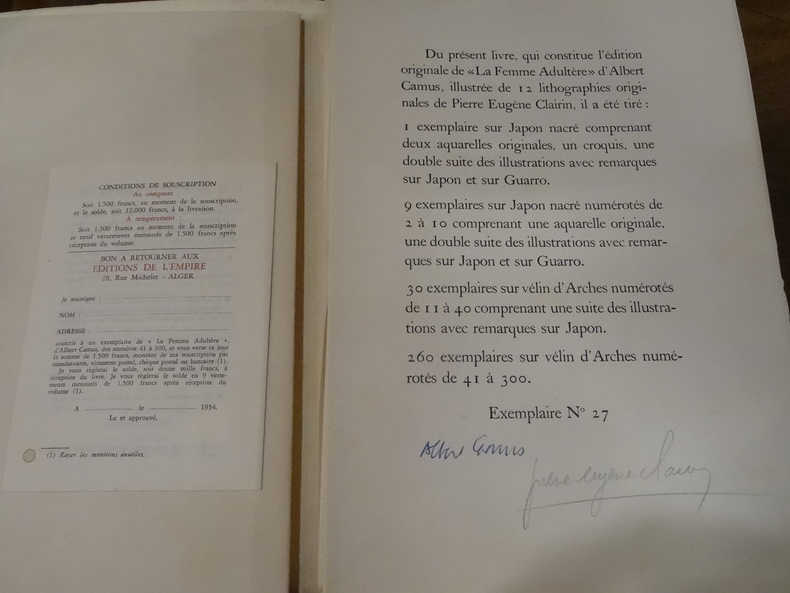 CONDITIONS DE SOUSCRIPTION
Au comptant :
Soit 1.500 francs, au moment de la souscription,
et le solde, soit 12.000 francs, à la livraison.
A tempérament :
Soit 1.500 francs au moment de la souscription
et neuf versements mensuels de 1.500 francs après
réception du volume.
BON A RETOURNER AUX
EDITIONS DE L'EMPIRE
28, Rue Michelet - ALGER
Je soussigné :
NOM :
ADRESSE :
souscris à un exemplaire de « La Femme Adultère »,
d'Albert Camus, des numéros 41 à 300, et vous verse ce jour
la somme de 1.500 francs, montant de ma souscription par
mandat-carte, virement postal, chèque postal ou bancaire (1).
Je vous réglerai le solde, soit douze mille francs, à
réception du livre. Je vous réglerai le solde en 9 verse-
ments mensuels de 1.500 francs après réception du
volume (1).
A le 1954.
Lu et approuvé,
(1) Rayer les mentions inutiles.
Du présent livre, qui constitue l'édition
originale de «La Femme Adultère» d'Albert
Camus, illustrée de 12 lithographies origi-
nales de Pierre Eugène Clairin, il a été tiré :
1 exemplaire sur Japon nacré comprenant
deux aquarelles originales, un croquis, une
double suite des illustrations avec remarques
sur Japon et sur Guarro.
9 exemplaires sur Japon nacré numérotés de
2 à 10 comprenant une aquarelle originale,
une double suite des illustrations avec remar-
ques sur Japon et sur Guarro.
30 exemplaires sur vélin d'Arches numérotés
de 11 à 40 comprenant une suite des illustra-
tions avec remarques sur Japon.
260 exemplaires sur vélin d'Arches numé-
rotés de 41 à 300.
Exemplaire N° 27
Albert Camus
Pierre Eugène Clairin